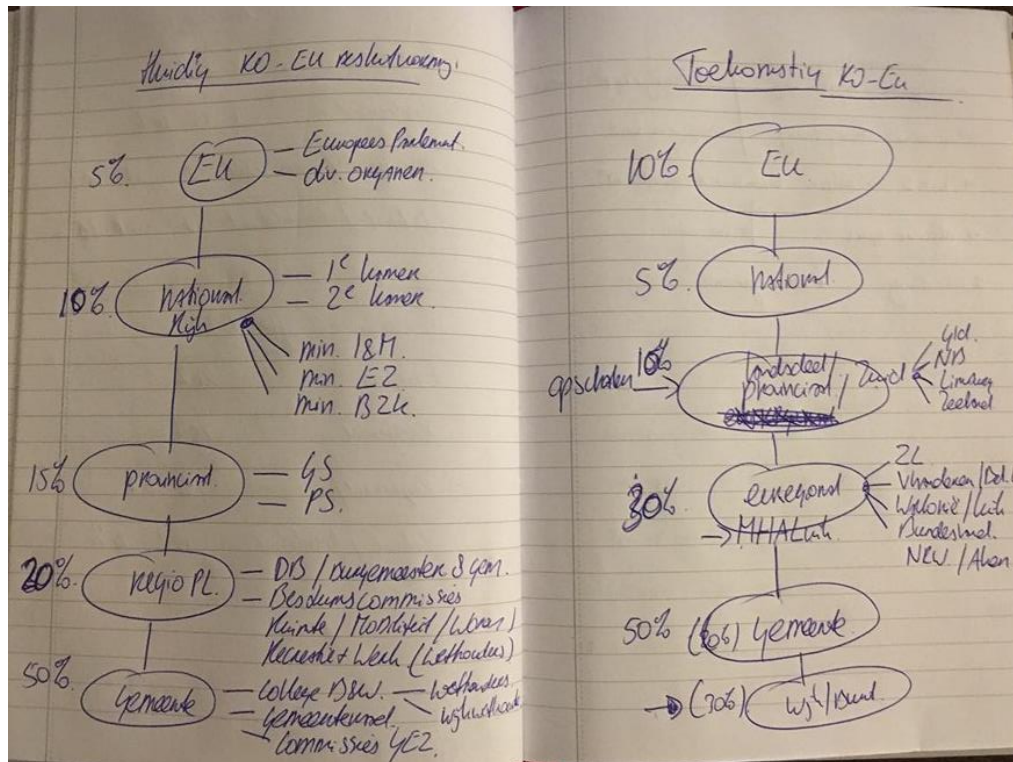 Huidig KO-EU
5% EU - Europees Parlement.
- div. organen.
10% nationaal - 1e kamer
Rijk - 2e kamer
min. I&M.
min. EZ.
min. BZK.
15% provinciaal. - GS
- PS.
20% Regio PL. - DB / Burgemeesters 8 gem.
- Bestuurscommissies
Ruimte / Mobiliteit / Wonen /
Recreatie + Werk (Wethouders)
50% Gemeente - College B&W. - Wethouders
- Gemeenteraad.
- Commissies
Toekomstig KO-EU
10% EU
5% nationaal
opschalen 10% landsdeel / provinciaal / Zuid
Gld.
NB
Limburg
Zeeland
30% euregionaal
ZL
Vlaanderen /
Wallonië / Luik
Bundesland.
NRW. / Aken
50% (20%) Gemeente
(30%) Wijk/Buurt.